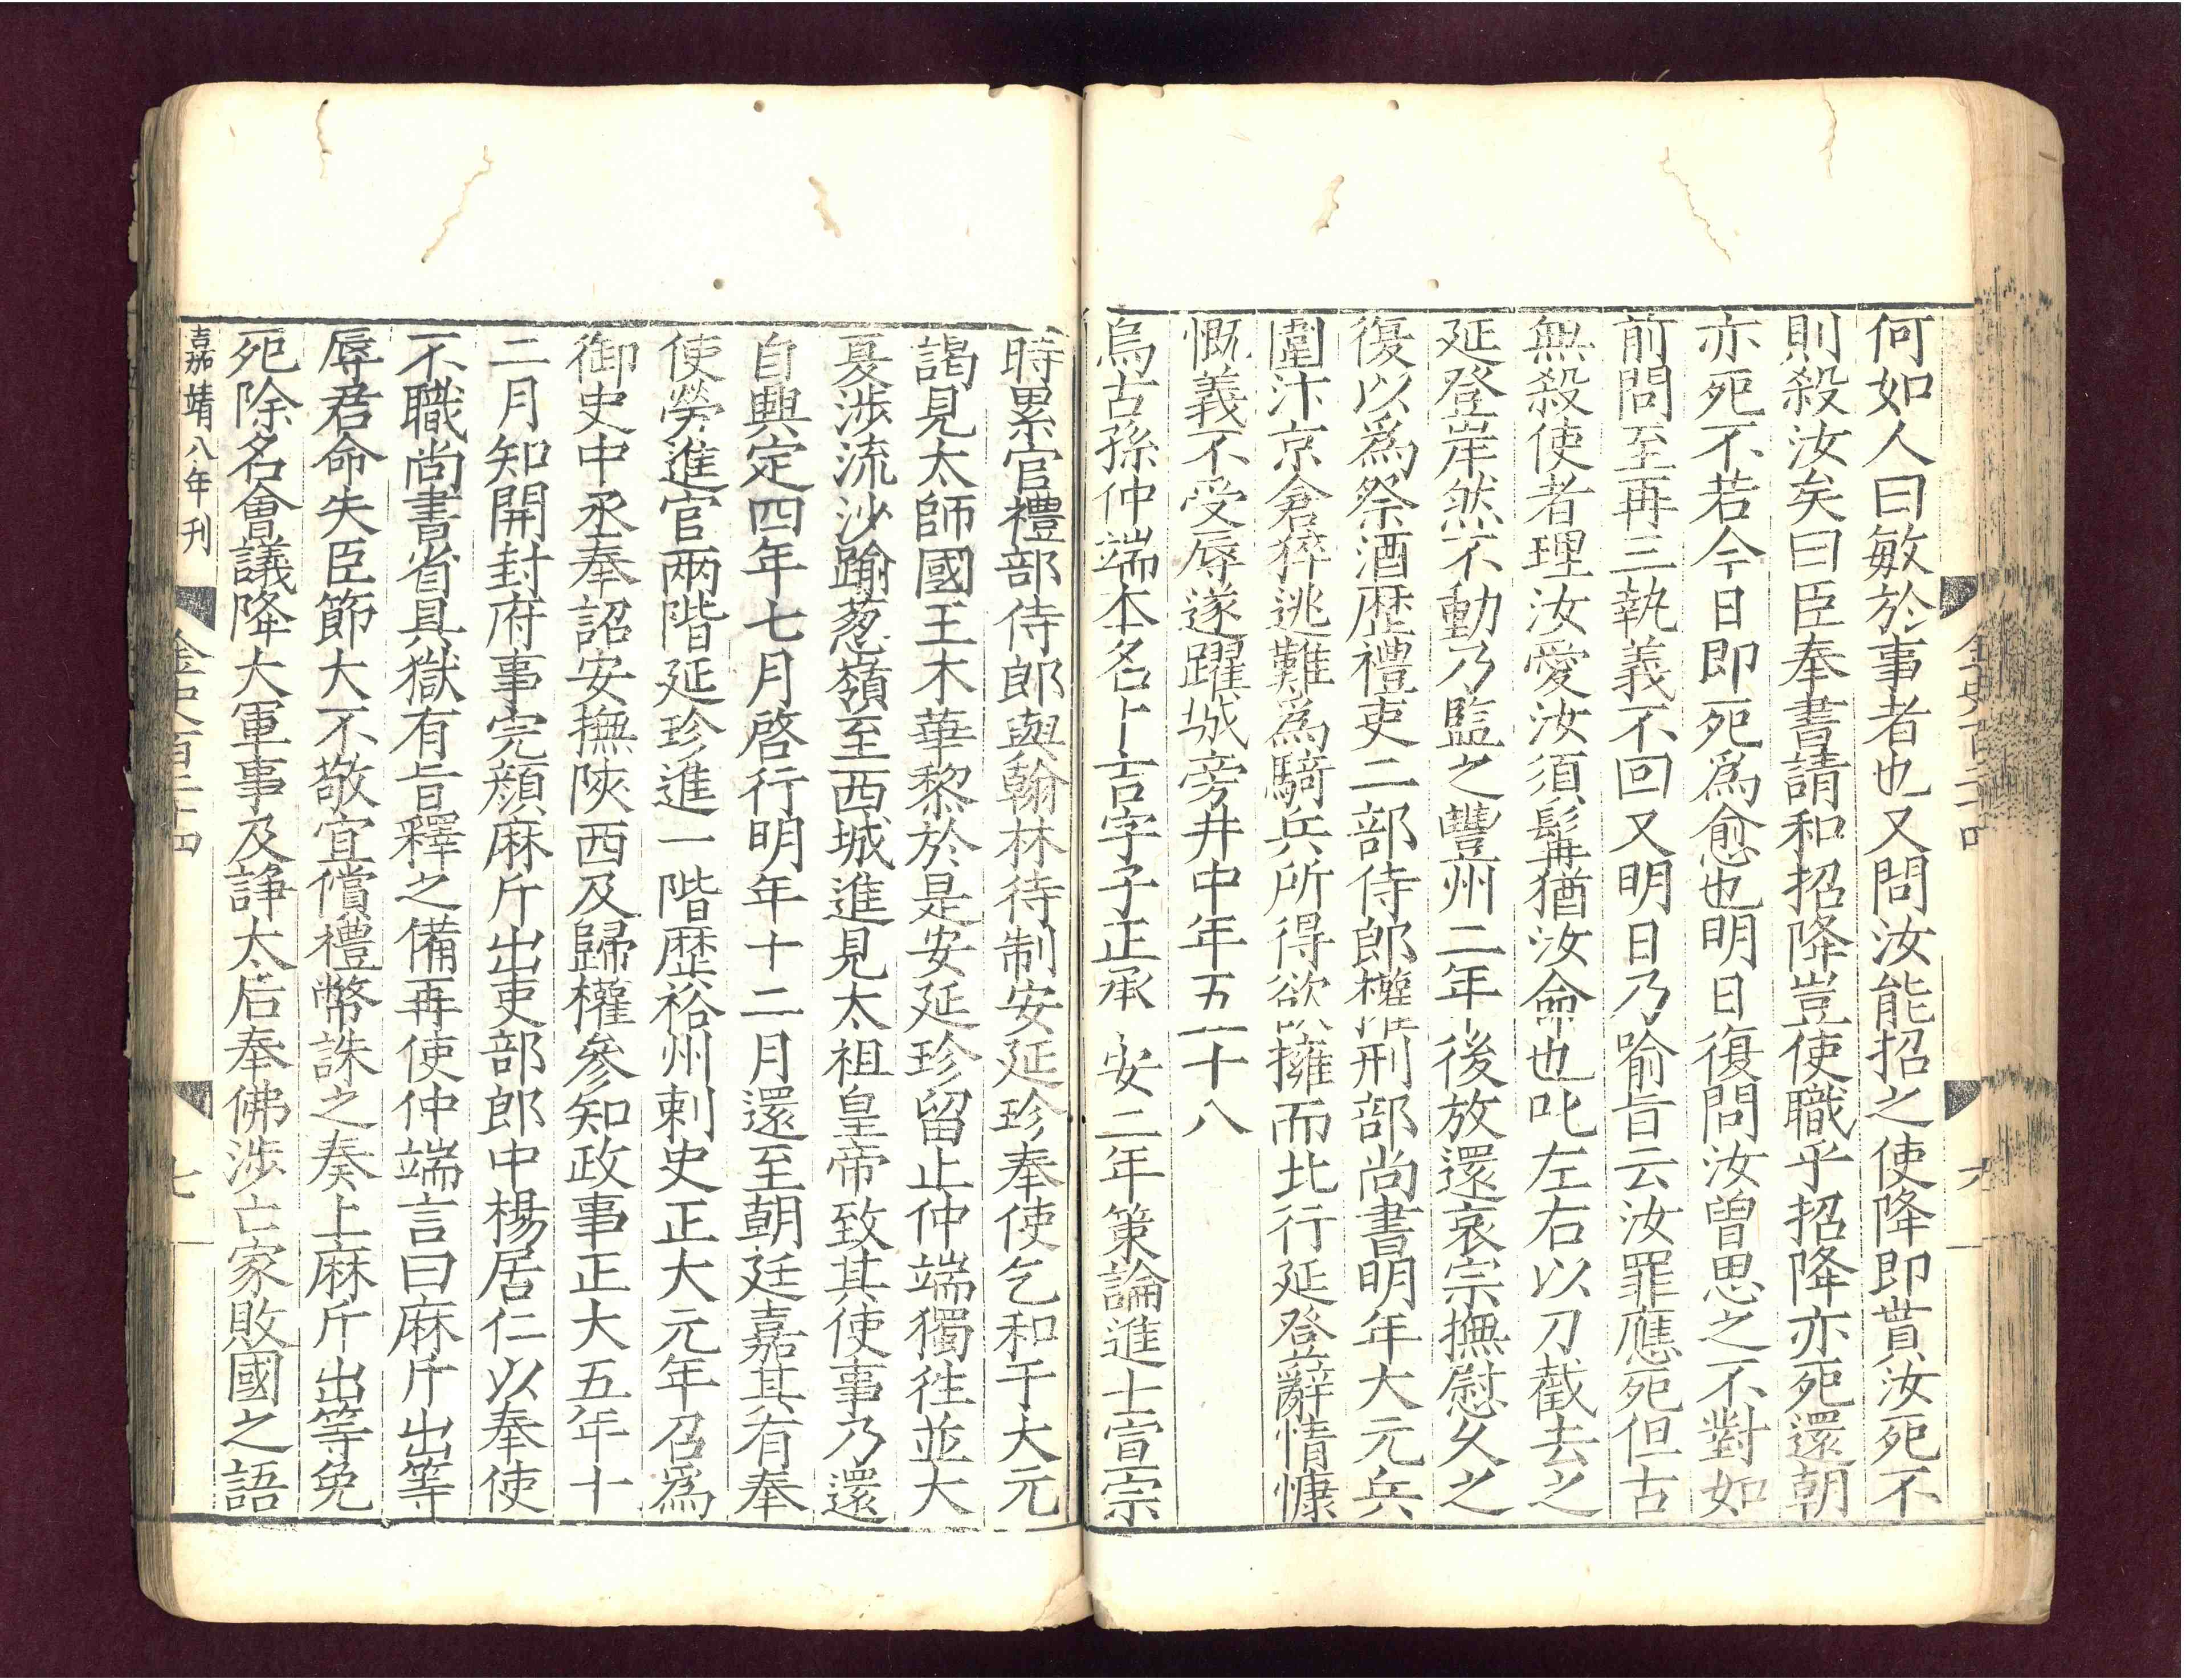 何如人曰敏於事者也又問汝能招之使降即貰汝死不
則殺汝矣曰臣奉書請和招降豈使職乎招降亦死還朝
亦死不若今日即死爲愈也明日復問汝曾思之不對如
前問至再三執義不回又明日乃喻旨云汝罪應死但古
無殺使者理汝愛汝須髯猶汝命也叱左右以刀截去之
延登岸然不動乃監之豐州二年後放還哀宗撫慰久之
復以爲祭酒歷禮吏二部侍郎權刑部尚書明年大元兵
圍汴京倉猝逃難爲騎兵所得欲擁而北行延登辭情慷
慨義不受辱遂躍城旁井中年五十八
烏古孫仲端本名卜吉字子正承安二年策論進士宣宗
金史百二十四
六
時累官禮部侍郎與翰林待制安延珍奉使乞和于大元
謁見太師國王木華黎於是安延珍留止仲端獨徃並大
夏涉流沙踰葱嶺至西域進見太祖皇帝致其使事乃還
自興定四年七月啓行明年十二月還至朝廷嘉其有奉
使勞進官兩階延珍進一階歷裕州刺史正大元年召爲
御史中丞奉詔安撫陝西及歸權參知政事正大五年十
二月知開封府事完顏麻斤出吏部郎中楊居仁以奉使
不職尚書省具獄有旨釋之備再使仲端言曰麻斤出等
辱君命失臣節大不敬宜償禮幣誅之奏上麻斤出等免
死除名會議降大軍事及諍太后奉佛涉亡家敗國之語
嘉靖八年刊
金史百二十四
七